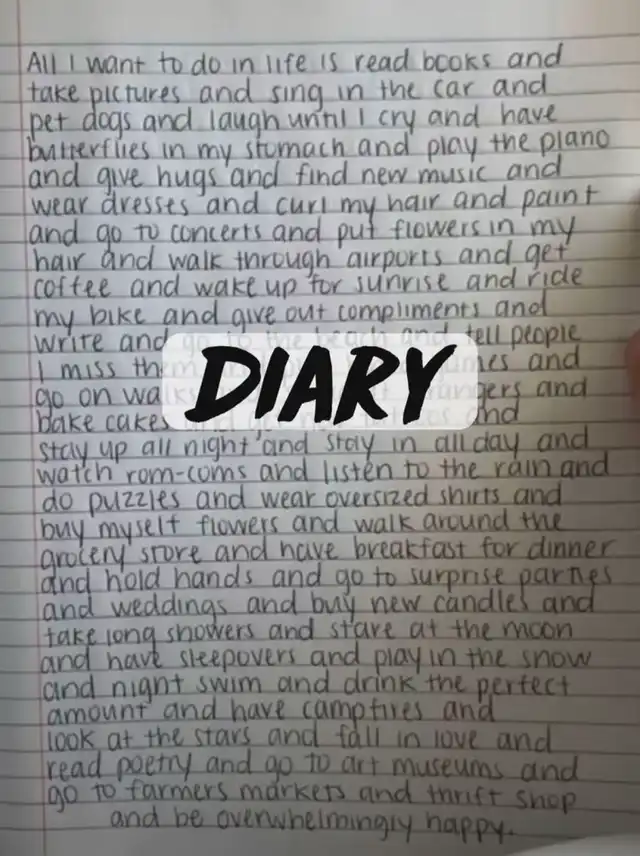 All I want to do in life is read books and
take pictures and sing in the car and
pet dogs and laugh until I cry and have
butterflies in my stomach and play the piano
and give hugs and find new music and
wear dresses and curl my hair and paint
and go to concerts and put flowers in my
hair and walk through airports and get
coffee and wake up for sunrise and ride
my bike and give out compliments and
write and go to the beach and tell people
I miss them and
go on walks and
bake cakes and
DIARY
stay up all night and stay in all day and
watch rom-coms and listen to the rain and
do puzzles and wear oversized shirts and
buy myself flowers and walk around the
grocery store and have breakfast for dinner
and hold hands and go to surprise parties
and weddings and buy new candles and
take long showers and stare at the moon
and have sleepovers and play in the snow
and night swim and drink the perfect
amount and have campfires and
look at the stars and fall in love and
read poetry and go to art museums and
go to farmers markets and thrift shop
and be overwhelmingly happy.